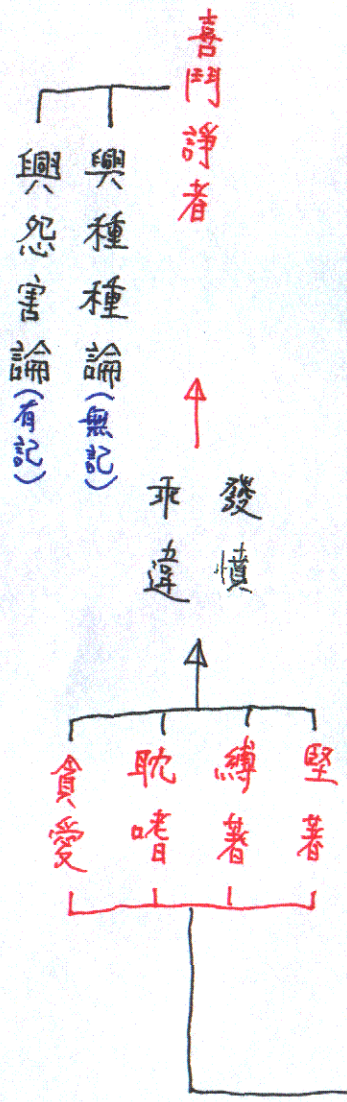 喜鬥諍者
興種種論(無記)
興怨害論(有記)
發憤
乖違
堅著
縛著
耽嗜
貪愛